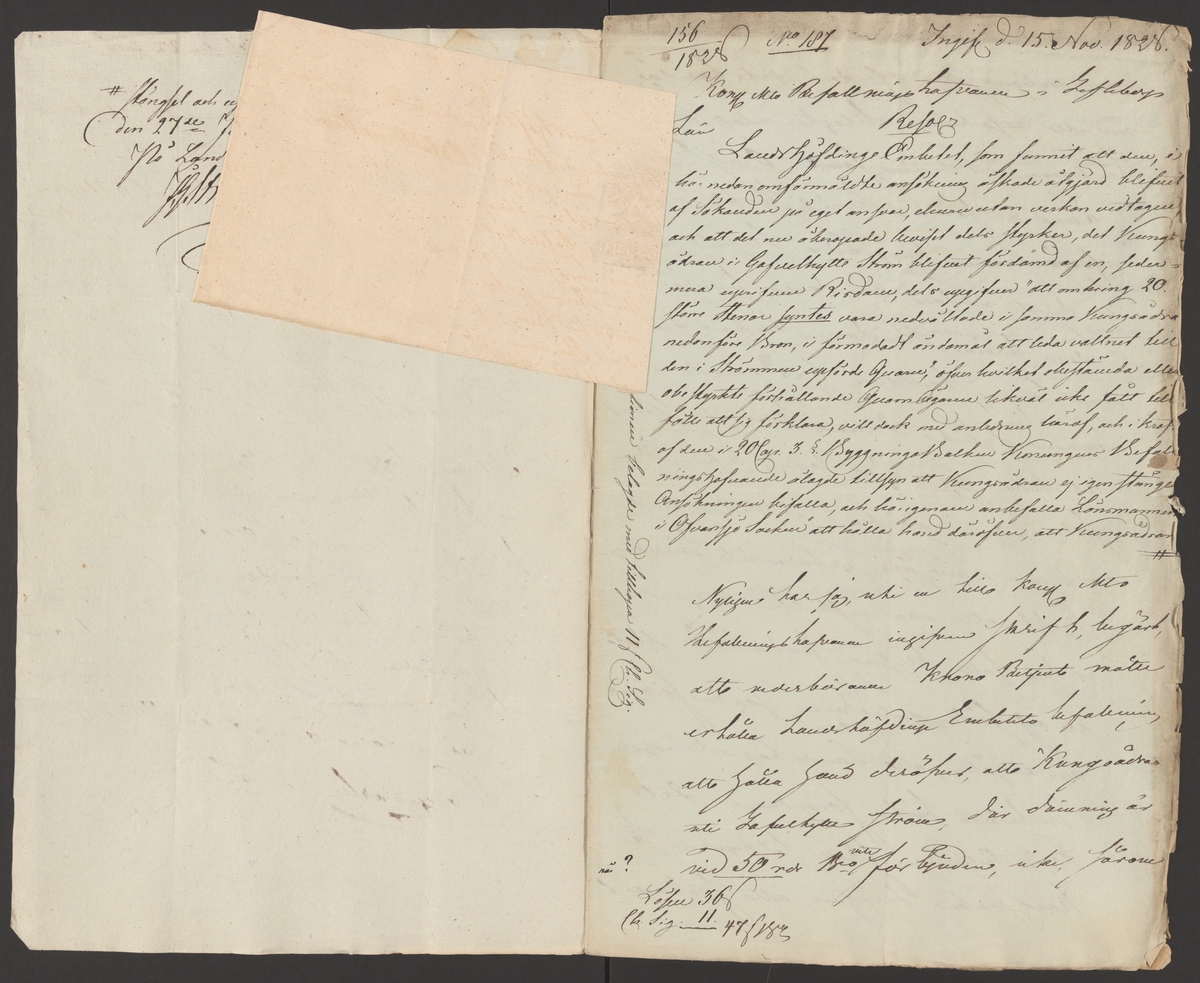 # stängsel och
den 27de
På Land
156
1828
No 187
Ingifv. d. 15. Nov. 1828.
Kongl Mts Befallningshafvande i Gefleborgs
Län
Resol.
Landshöfdinge Embetet, som funnit att den, i
här nedan omförmäldte ansökning åskade åtgjärd blifvit
af Sökanden på eget ansvar, ehuru utan verkan vidtagen
och att det nu åberopade beviset dels styrker, det Kungs-
ådran i Gafvelhytte Ström blifvit fördämd af en, seder-
mera uprifven Risdam, dels upgifver "att omkring 20.
större stenar syntes vara nedvältade i samma Kungsådra
nedanföre Bron, i förmodadt ändamål att leda vattnet till
den i Strömmen upförde Qvarn", öfver hvilket obestämda eller
obestyrkte förhållande Qvarnägarne likväl icke fått till-
fälle att sig förklara, vill dock med anledning häraf, och i kraft
af den i 20 Cap. 3. §. Byggninga Balken Konungens Befall-
ningshafvande ålagde tillsyn att Kungsådran ej igen stänges
Ansökningen bifalla, och härigenom anbefalla Länsmannen
i Ofvansjö Socken att hålla hand däröfver, att Kungsådran
#
Nyligen har jag, uti en till Kongl Mts
Befalningshafvande ingifven skrift, begärt,
att vederbörande Krono Betjent måtte
erhålla Landshöfdinge Embetets befalning
att hålla hand deröfver, att Kungsådran
uti Gafvelhytte ström, där dämning är
vid 50 rdr Bco vite förbjuden, icke, såsom
belagde med tillhopa 11 s Ch. Sig.
når?
Lösen 36
Ch. Sig. 11.
47 s